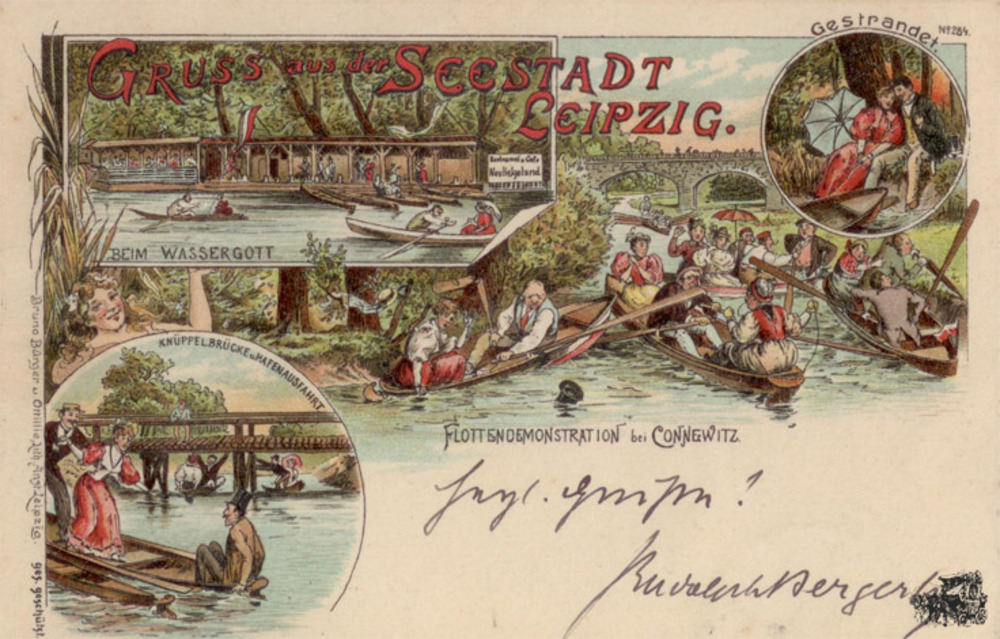 Gestrandet.
No 264.
GRUSS aus der SEESTADT
LEIPZIG.
Restaurant u. Café
Neu Helgoland
BEIM WASSERGOTT
KNÜPPELBRÜCKE u. HAFENAUSFAHRT
FLOTTENDEMONSTRATION bei CONNEWITZ.
Herzl. Grüße!
Rudolph Berger
Bruno Bürger u. Ottillie Lith. Anst. Leipzig.
ges. geschützt